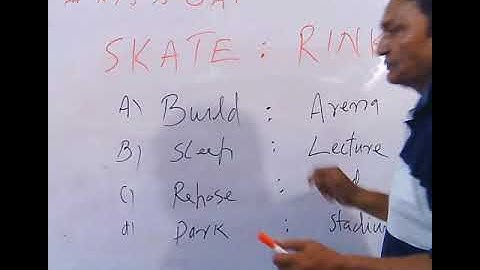 SKATE : RINK
A) Build : Arena
B) Sleep : Lecture
C) Repose :
d) Park : Stadium